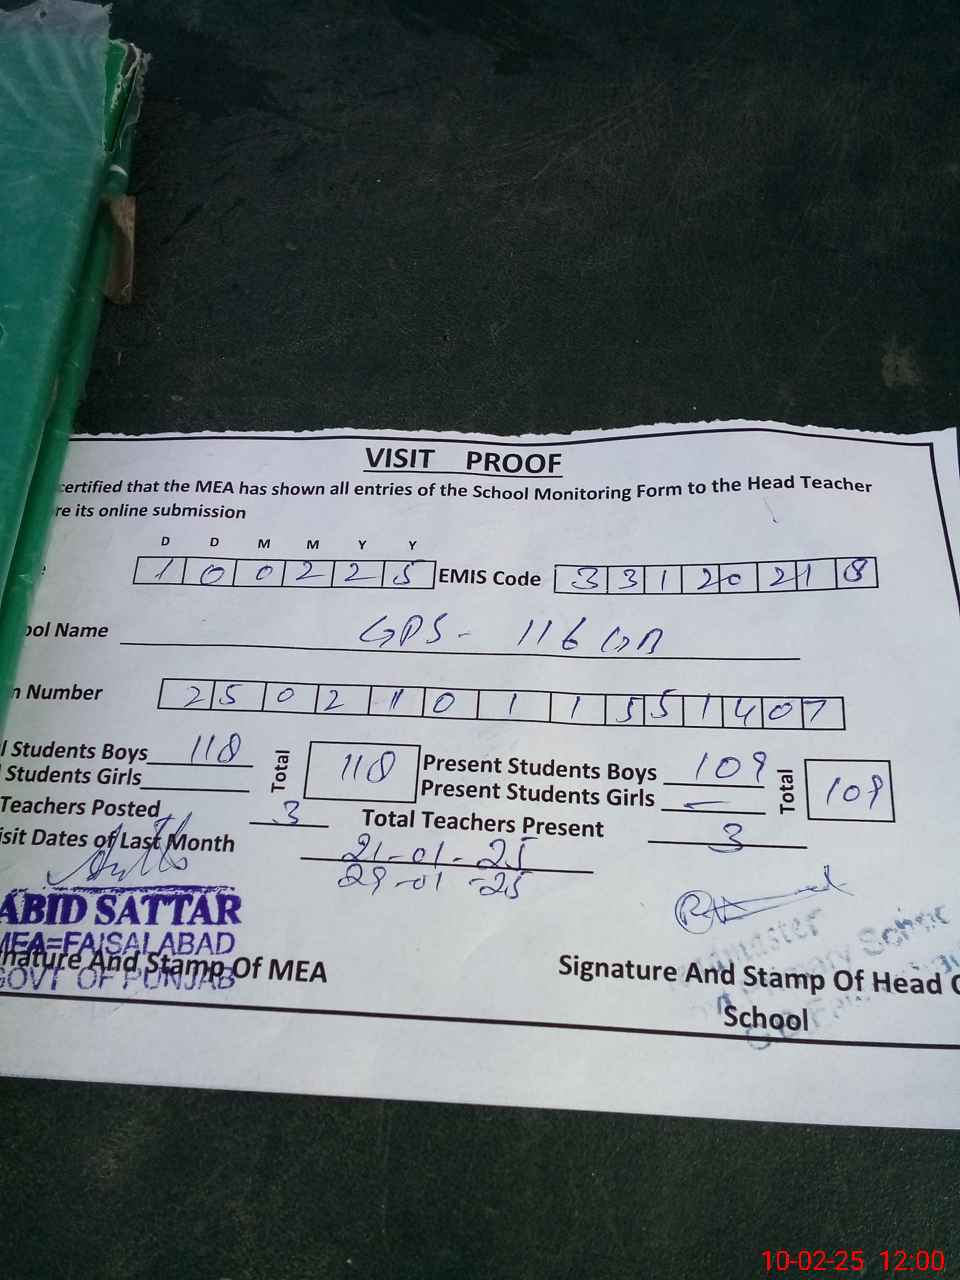 VISIT PROOF
certified that the MEA has shown all entries of the School Monitoring Form to the Head Teacher
re its online submission
D D M M Y Y
1 0 0 2 2 5 EMIS Code 3 3 1 2 0 2 1 8
ool Name GPS- 116 GB
n Number 2 5 0 2 1 1 0 1 1 5 5 1 4 0 7
l Students Boys 118 Total 118 Present Students Boys 109 Total 109
Students Girls Present Students Girls -
Teachers Posted 3 Total Teachers Present 3
isit Dates of Last Month 21-01-25
29-01-25
ABID SATTAR
MEA=FAISALABAD
GOVT OF PUNJAB
nature And Stamp Of MEA
Signature And Stamp Of Head O
School
10-02-25 12:00